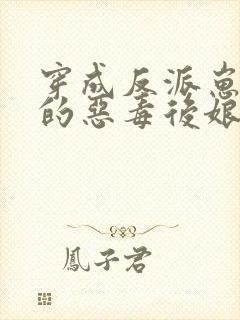 穿成反派崽
的惡毒後娘
鳳子君